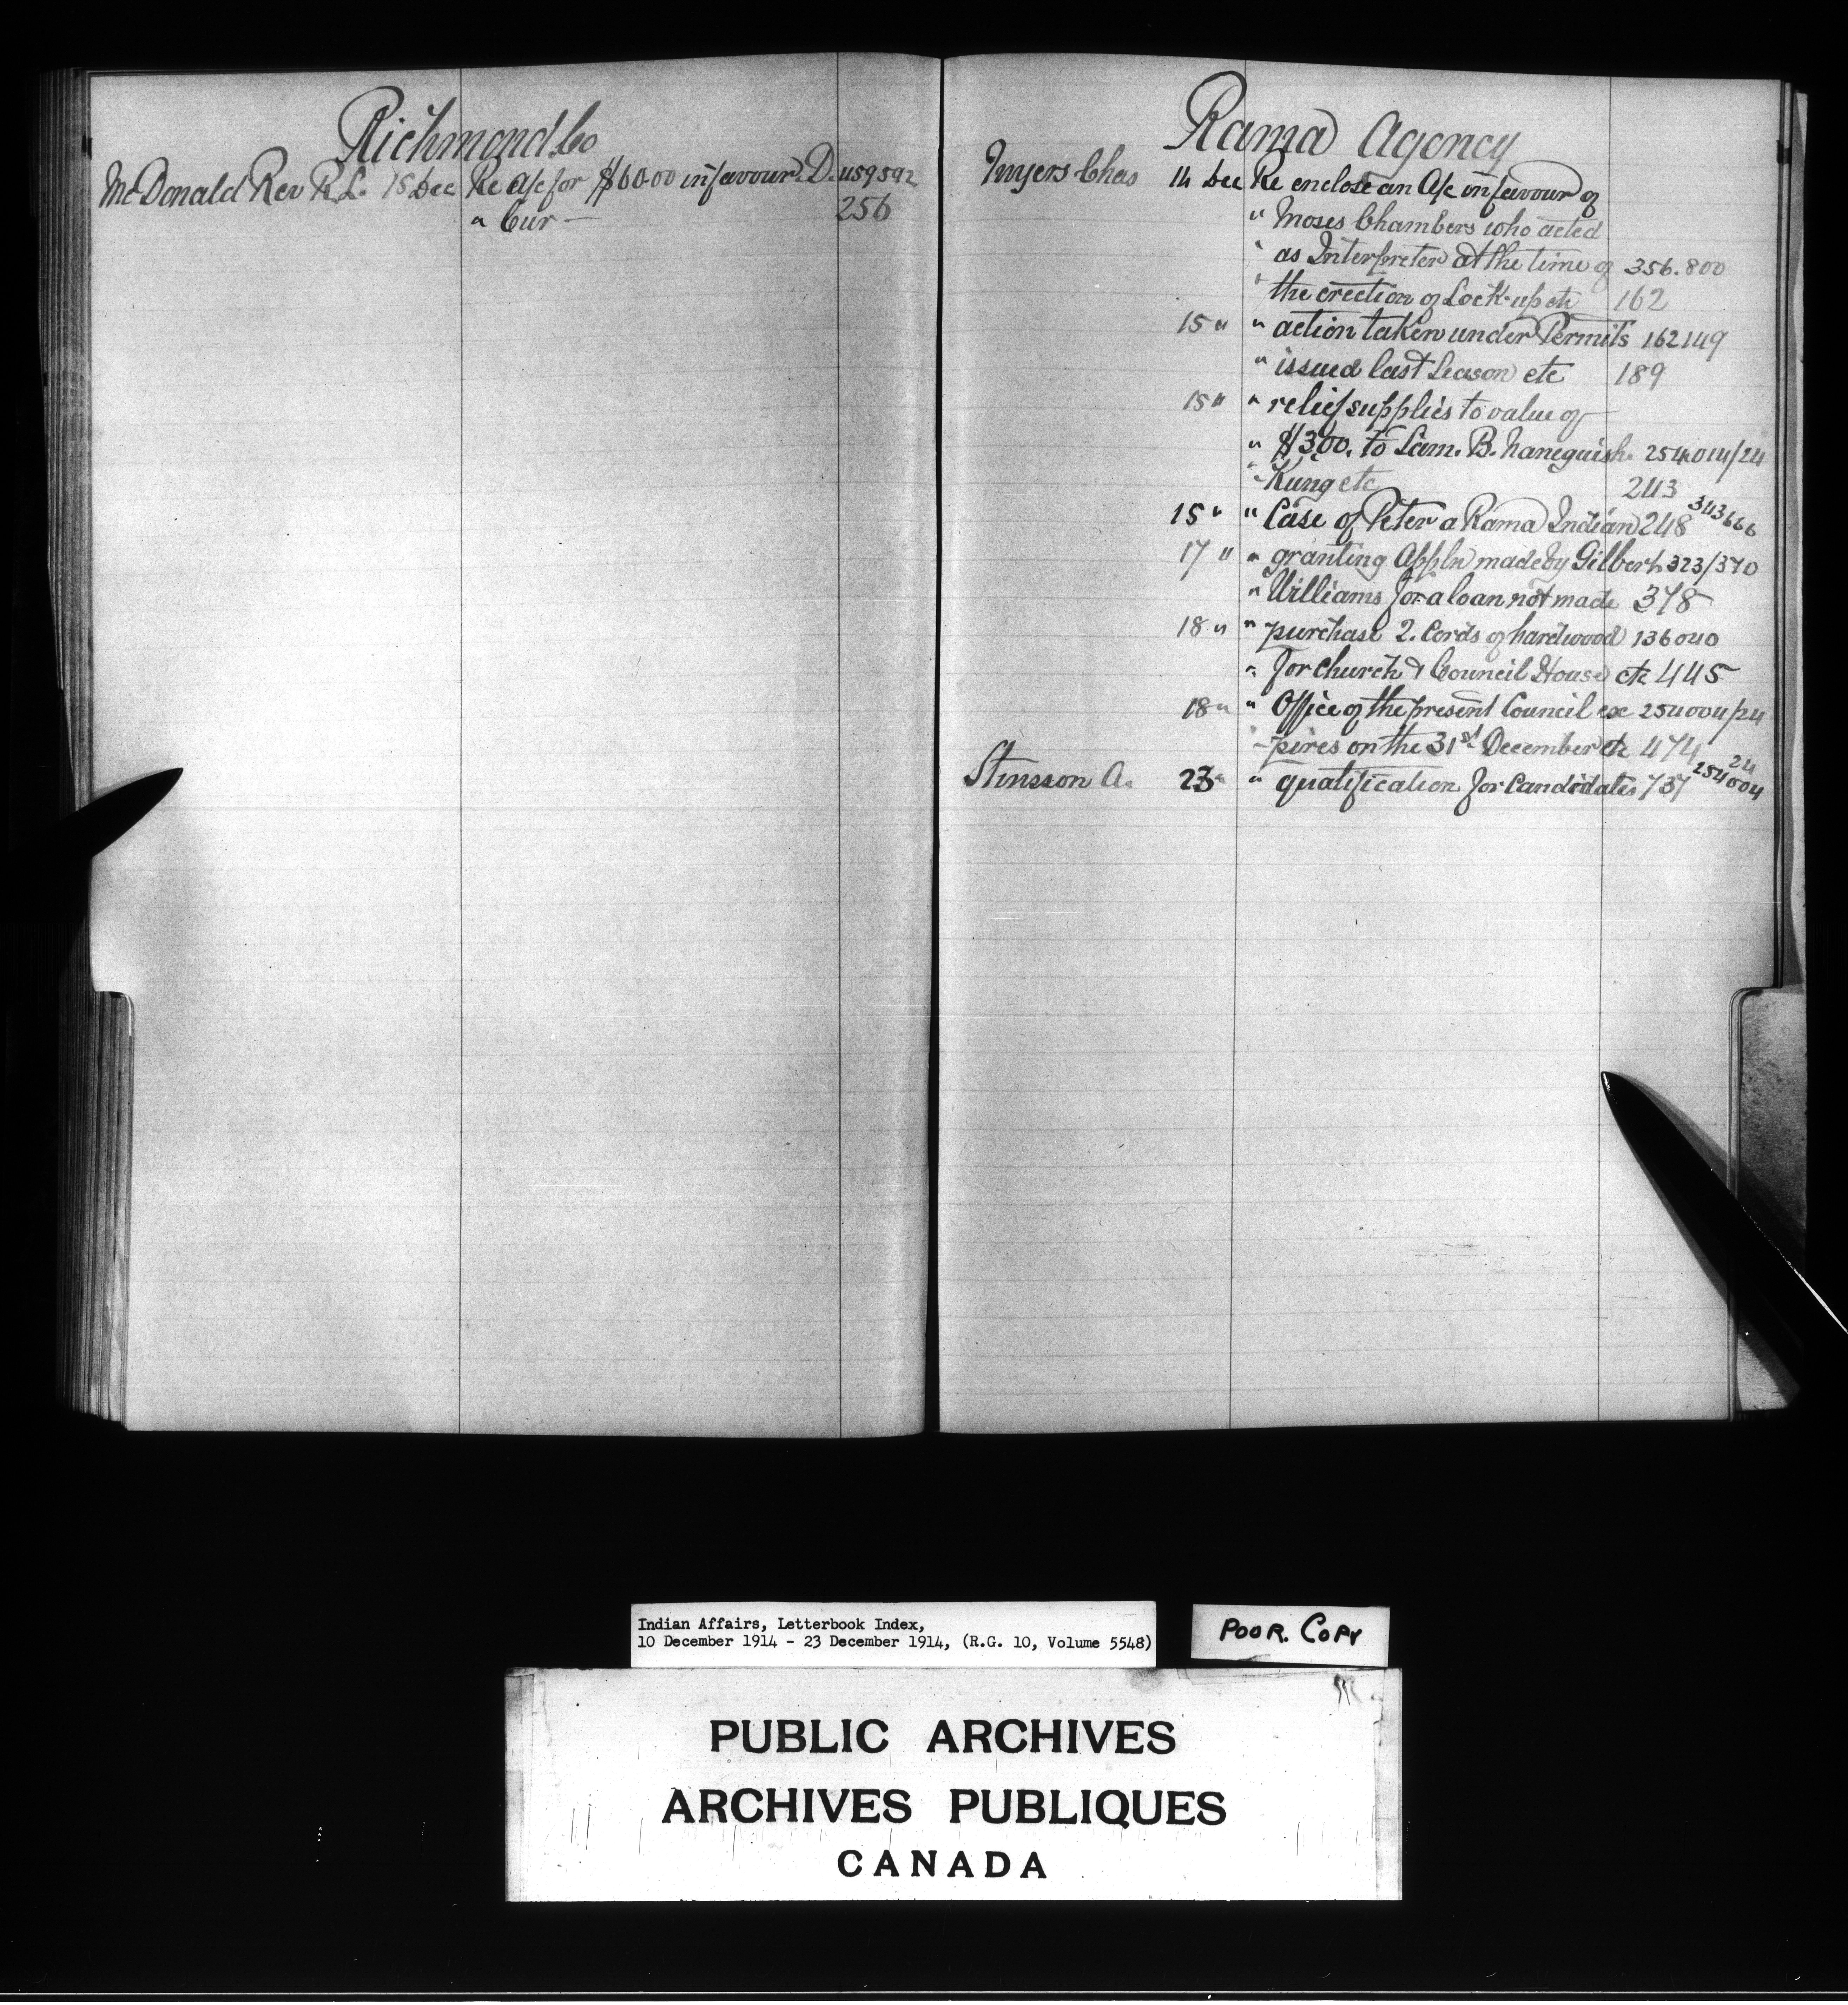 Richmond Co
McDonald Rev R. L. 15 Dec Re a/c for $60.00 in favour D. 459592
" Cur — 256
Rama Agency
Myers Chas 14 Dec Re enclose an a/c in favour of
" Moses Chambers who acted
" as Interpreter at the time of 356.800
" the erection of Lock-up etc 162
15 " " action taken under Permits 162149
" issued last Season etc 189
15 " " relief supplies to value of
" $300. to Sam. B. Naneguish- 254014/24
" Kung etc 243
15 " " Case of Peter a Rama Indian 248 343666
17 " " granting Appln made by Gilbert 323/370
" Williams for a loan not made 378
18 " " purchase 2. Cords of hardwood 136040
" for Church & Council House etc 445
18 " " Office of the present Council ex 254004/24
" -pires on the 31st December etc 474
Stinsson A. 23 " " qualification for Candidates 737 254004 24
Indian Affairs, Letterbook Index,
10 December 1914 - 23 December 1914, (R.G. 10, Volume 5548)
POOR. COPY
PUBLIC ARCHIVES
ARCHIVES PUBLIQUES
CANADA